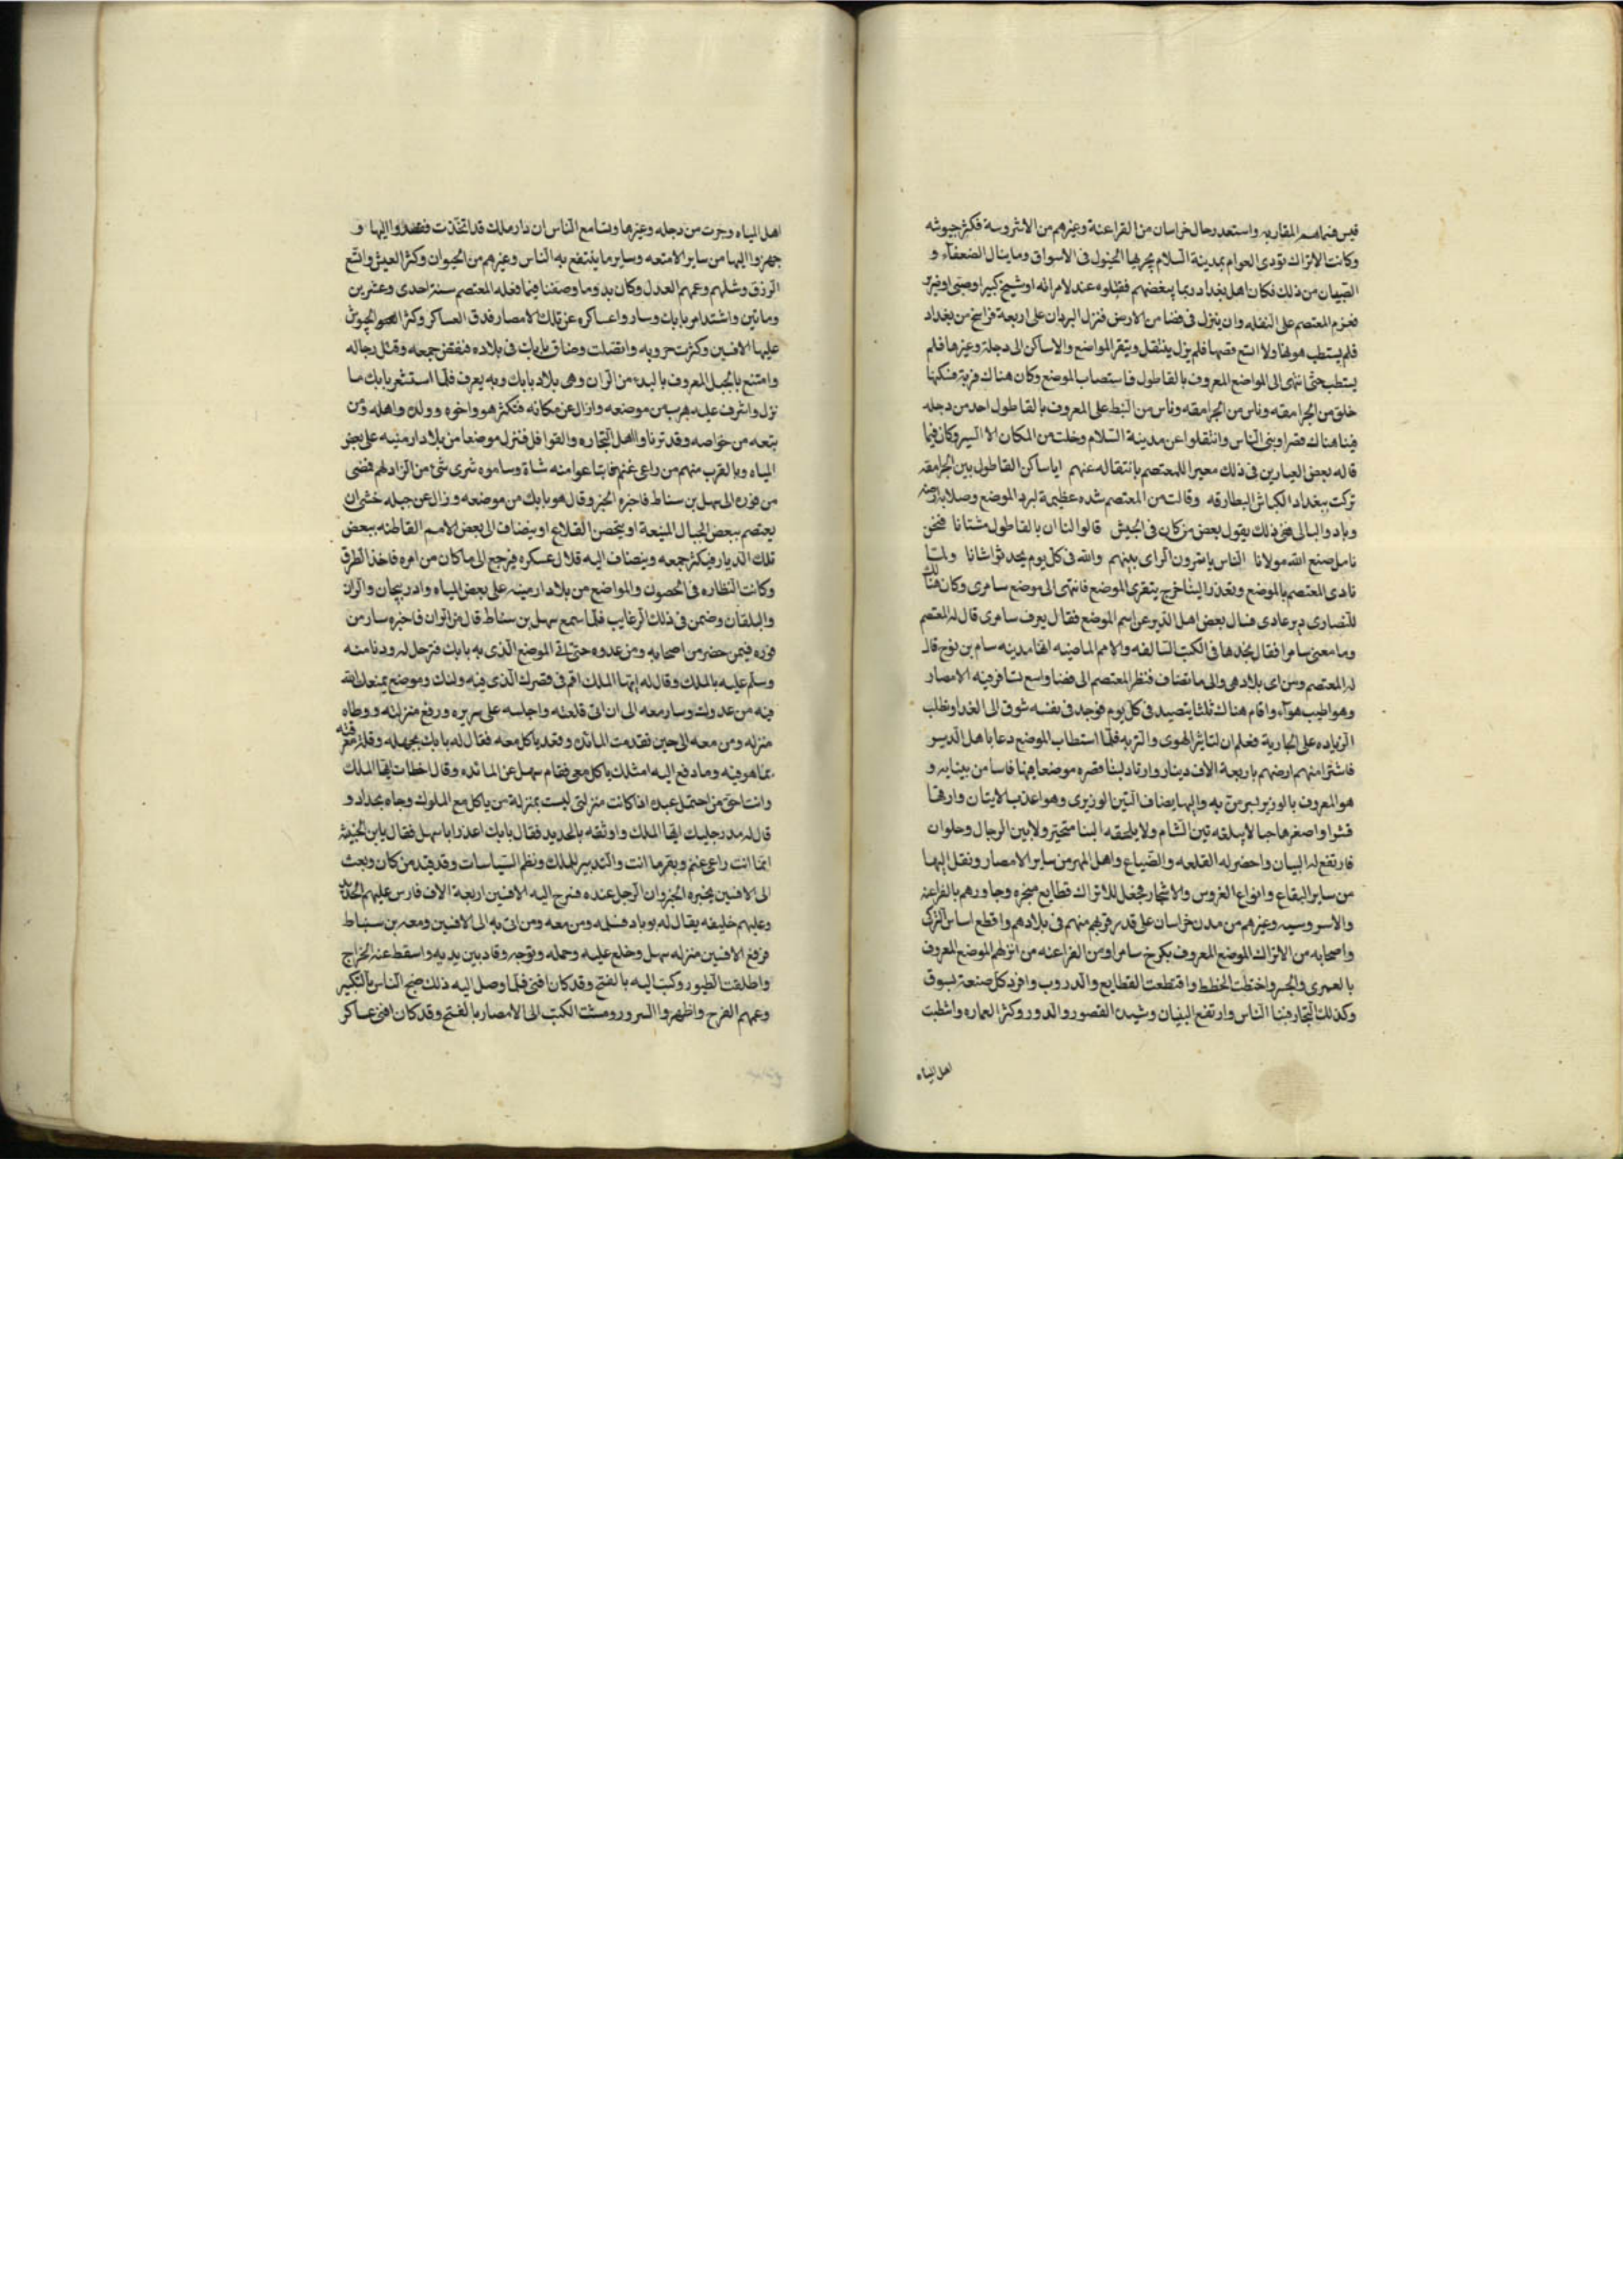 قيس فسماهم المغاربه واستعد رجال خراسان من الفراعنة وغيرهم من الاشروسة فكثر جيوشه
وكانت الاتراك تودى العوام بمدينة السلام بجريها الخيول فى الاسواق وما ينال الضعفآء و
الصبيان من ذلك فكان اهل بغداد ربما ببعضهم فقتلوه عند لامراة اوشيخ كبير اوصبى اوضرير
فعزم المعتصم على النقله وان ينزل فى فضا من الارض فنزل البردان على اربعة فراسخ من بغداد
فلم يستطب هوآها ولا اتسع فضها فلم يزل ينتقل ويتقر المواضع والاماكن الى دجلة وغيرها فلم
يستطب حتى انتهى الى المواضع المعروف بالقاطول فاستصاب الموضع وكان هناك قرية يسكنها
خلق من الجرامقه وناس من الجرامقه وناس من النبط على المعروف بالقاطول احد من دجله
فبنا هناك قصرا وبنى الناس وانتقلوا عن مدينة السلام وخلت من المكان الا اليسير وكان فيما
قاله بعض العيارين فى ذلك معيرا للمعتصم بانتقاله عنهم ايا ساكن القاطول بين الجرامقه
تركت ببغداد الكباش البطارقه وقالت من المعتصم شده عظيمة لبرد الموضع وصلابة ارضه
وبادوا البالى ففى ذلك يقول بعض من كان فى الجيش قالوا لنا ان بالقاطول مشتانا فنحن
نامل صنع الله مولانا الناس ياتمرون الراى بينهم والله فى كل يوم يحدث شانا ولما
نادى المعتصم بالموضع وتعذر البنا خرج يتقرى الموضع فانتهى الى موضع سامرى وكان هناك
للنصارى دير عادى فسال بعض اهل الدير عن اسم الموضع فقال يعرف سامرى قال له المعتصم
وما معنى سامرا فقال نجدها فى الكتب السالفه والامم الماضيه انها مدينه سام بن نوح قال
له المعتصم ومن اى بلاد هى والى ما تضاف فنظر المعتصم الى فضا واسع تسافر فيه الابصار
وهوا طيب هوآء واقام هناك ثلثا يتصيد فى كل يوم فوجد فى نفسه شوق الى الغدا وتطلب
الزياده على الجارية فعلم ان لتاثير الهوى والتربه فلما استطاب الموضع دعا باهل الدير
فاشترا منهم ارضهم باربعة الاف دينار وارتاد لبنا قصره موضعا فيها فاسا من بينايه و
هو المعروف بالوزير بسر من به واليها يضاف التين الوزيرى وهو اعذب الاتيان وارقها
قشرا واصغرها حبا لا يبلغه تين الشام ولا يلحقه البنا متحيز ولا بين الرجال وحلوان
فارتفع له البيان واحضر له القلعه والصياع واهل المهر من ساير الامصار ونقل اليها
من ساير البقاع وانواع الغروس والاشجار فجعل للاتراك قطايع متحيزه وجاورهم بالفراعنه
والاسروسيه وغيرهم من مدن خراسان على قدر قربهم منهم فى بلادهم واقطع اساس التركى
واصحابه من الاتراك الموضع المعروف بكرخ سامرا ومن الفراعنه من انزلهم الموضع المعروف
بالعمرى والجسر واختطت الخطط واقتطعت القطايع والدروب وافرد كل صنعة بسوق
وكذلك التجار فبنا الناس وارتفع البنيان وشيدت القصور والدور وكثرا العماره واشطبت
اهل المياه
اهل المياه وجرت من دجله وغيرها وتسامع الناس ان دار ملك قد اتخذت فقصدوا اليها و
جهزوا اليها من ساير الامتعه وساير ما ينتفع به الناس وغيرهم من الحيوان وكثر العيش واتسع
الرزق وشلهم وعمهم العدل وكان بدو ما وصفنا فيما فعله المعتصم سنة احدى وعشرين
وماتين واشتد امر بابك وسار واعساكره عن تلك الامصار فدق العساكر وكثر الجيوش
عليها الافسين وكثرت حروبه واتصلت وضاق بابك فى بلاده فنفض جمعه وقتل رجاله
وامتنع بالجبل المعروف بالبد من الران وهى بلاد بابك وبه يعرف فلما استشعر بابك ما
نزل واشرف عليه هرب من موضعه وازال عن مكانه فتكثر هو واخوه وولده واهله ومن
يتبعه من خواصه وقد تزيا واالهل التجاره والقوافل فنزله موضعا من بلاد ارمنيه على بعض
المياه وبالقرب منهم من راعى غنم فابتاعوا منه شاة وساموه شرى شئ من الزاد لهم فمضى
من فوره الى سهل بن سناط فاخبره الخبر وقال هو بابك من موضعه وزال عن جبله خشى ان
يعتصم ببعض الجبال المنيعة او يتحصن القلاع او يضاف الى بعض الامم القاطنه ببعض
تلك الديار فيكثر جمعه وينضاف اليه قلال عسكره فيرجع الى ما كان من امره فاخذ الطرق
وكانت النظاره فى الحصون والمواضع من بلاد ارمينيه على بعض المياه وادربيجان والران
والبلقان وضمن فى ذلك الرغايب فلما سمع سهل بن سناط قال من الران فاخبره سار من
فوره فيمن حضر من اصحابه ومن عدوه حتى اتى الموضع الذى به بابك فترجل له ودنا منه
وسلم عليه بالملك وقال له ايها الملك اقم فى قصرك الذى فيه ولنك وموضع يمنعك الله
فيه من عدوك وسار معه الى ان اتى قلعته واجلسه على سريره ورفع منزلته ووطاه
منزله ومن معه الى حين فقدمت المائده وقعد ياكل معه فقال له بابك بجهله وقلة معرفته
بما هو فيه وما دفع اليه امثلك ياكل معى فقام سهل عن المائده وقال اخطات ايها الملك
وانت احق من احتمل عبده اذا كانت منزلتى ليست بمنزلة من ياكل مع الملوك وجاه بحداد و
قال له مد رجليك ايها الملك واوثقه بالحديد فقال بابك اعذرا باسهل فقال يابن الخبيثة
انما انت راعى غنم وبقر ما انت والتدبير للملك ونظم السياسات وقد قيد من كان وبعث
الى الافسين يخبره الخبر وان الرجل عنده فسرج اليه الافسين اربعة الاف فارس عليهم الحديد
وعليهم خليفه يقال له بوباد فسلمه ومن معه ومن اتى به الى الافسين ومعه بن سنباط
فرفع الافسين منزله سهل وخلع عليه وحمله وتوجه وقاد بين يديه واسقط عنه الخراج
واطلقت الطيور وكتب اليه بالفتح وقد كان افنى فلما وصل اليه ذلك ضج الناس بالتكبير
وعمهم الفرح واظهروا السرور ومشت الكتب الى الامصار بالفتح وقد كان افنى عساكر